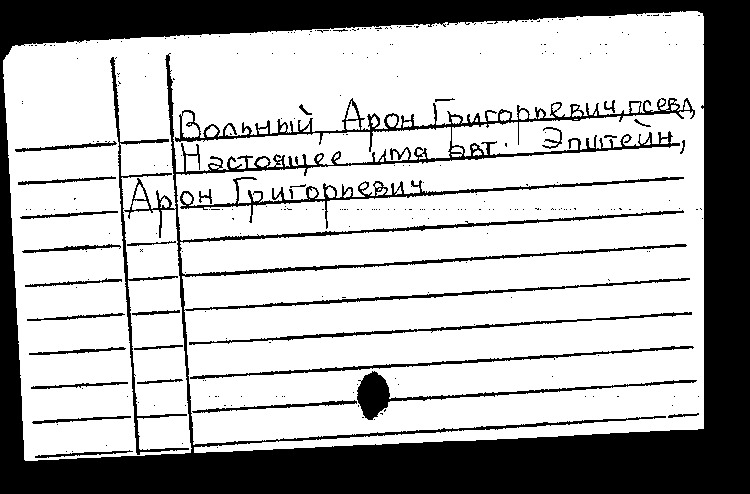 Вольный, Арон Григорьевич, псевд.
Настоящее имя авт. Эпштейн,
Арон Григорьевич